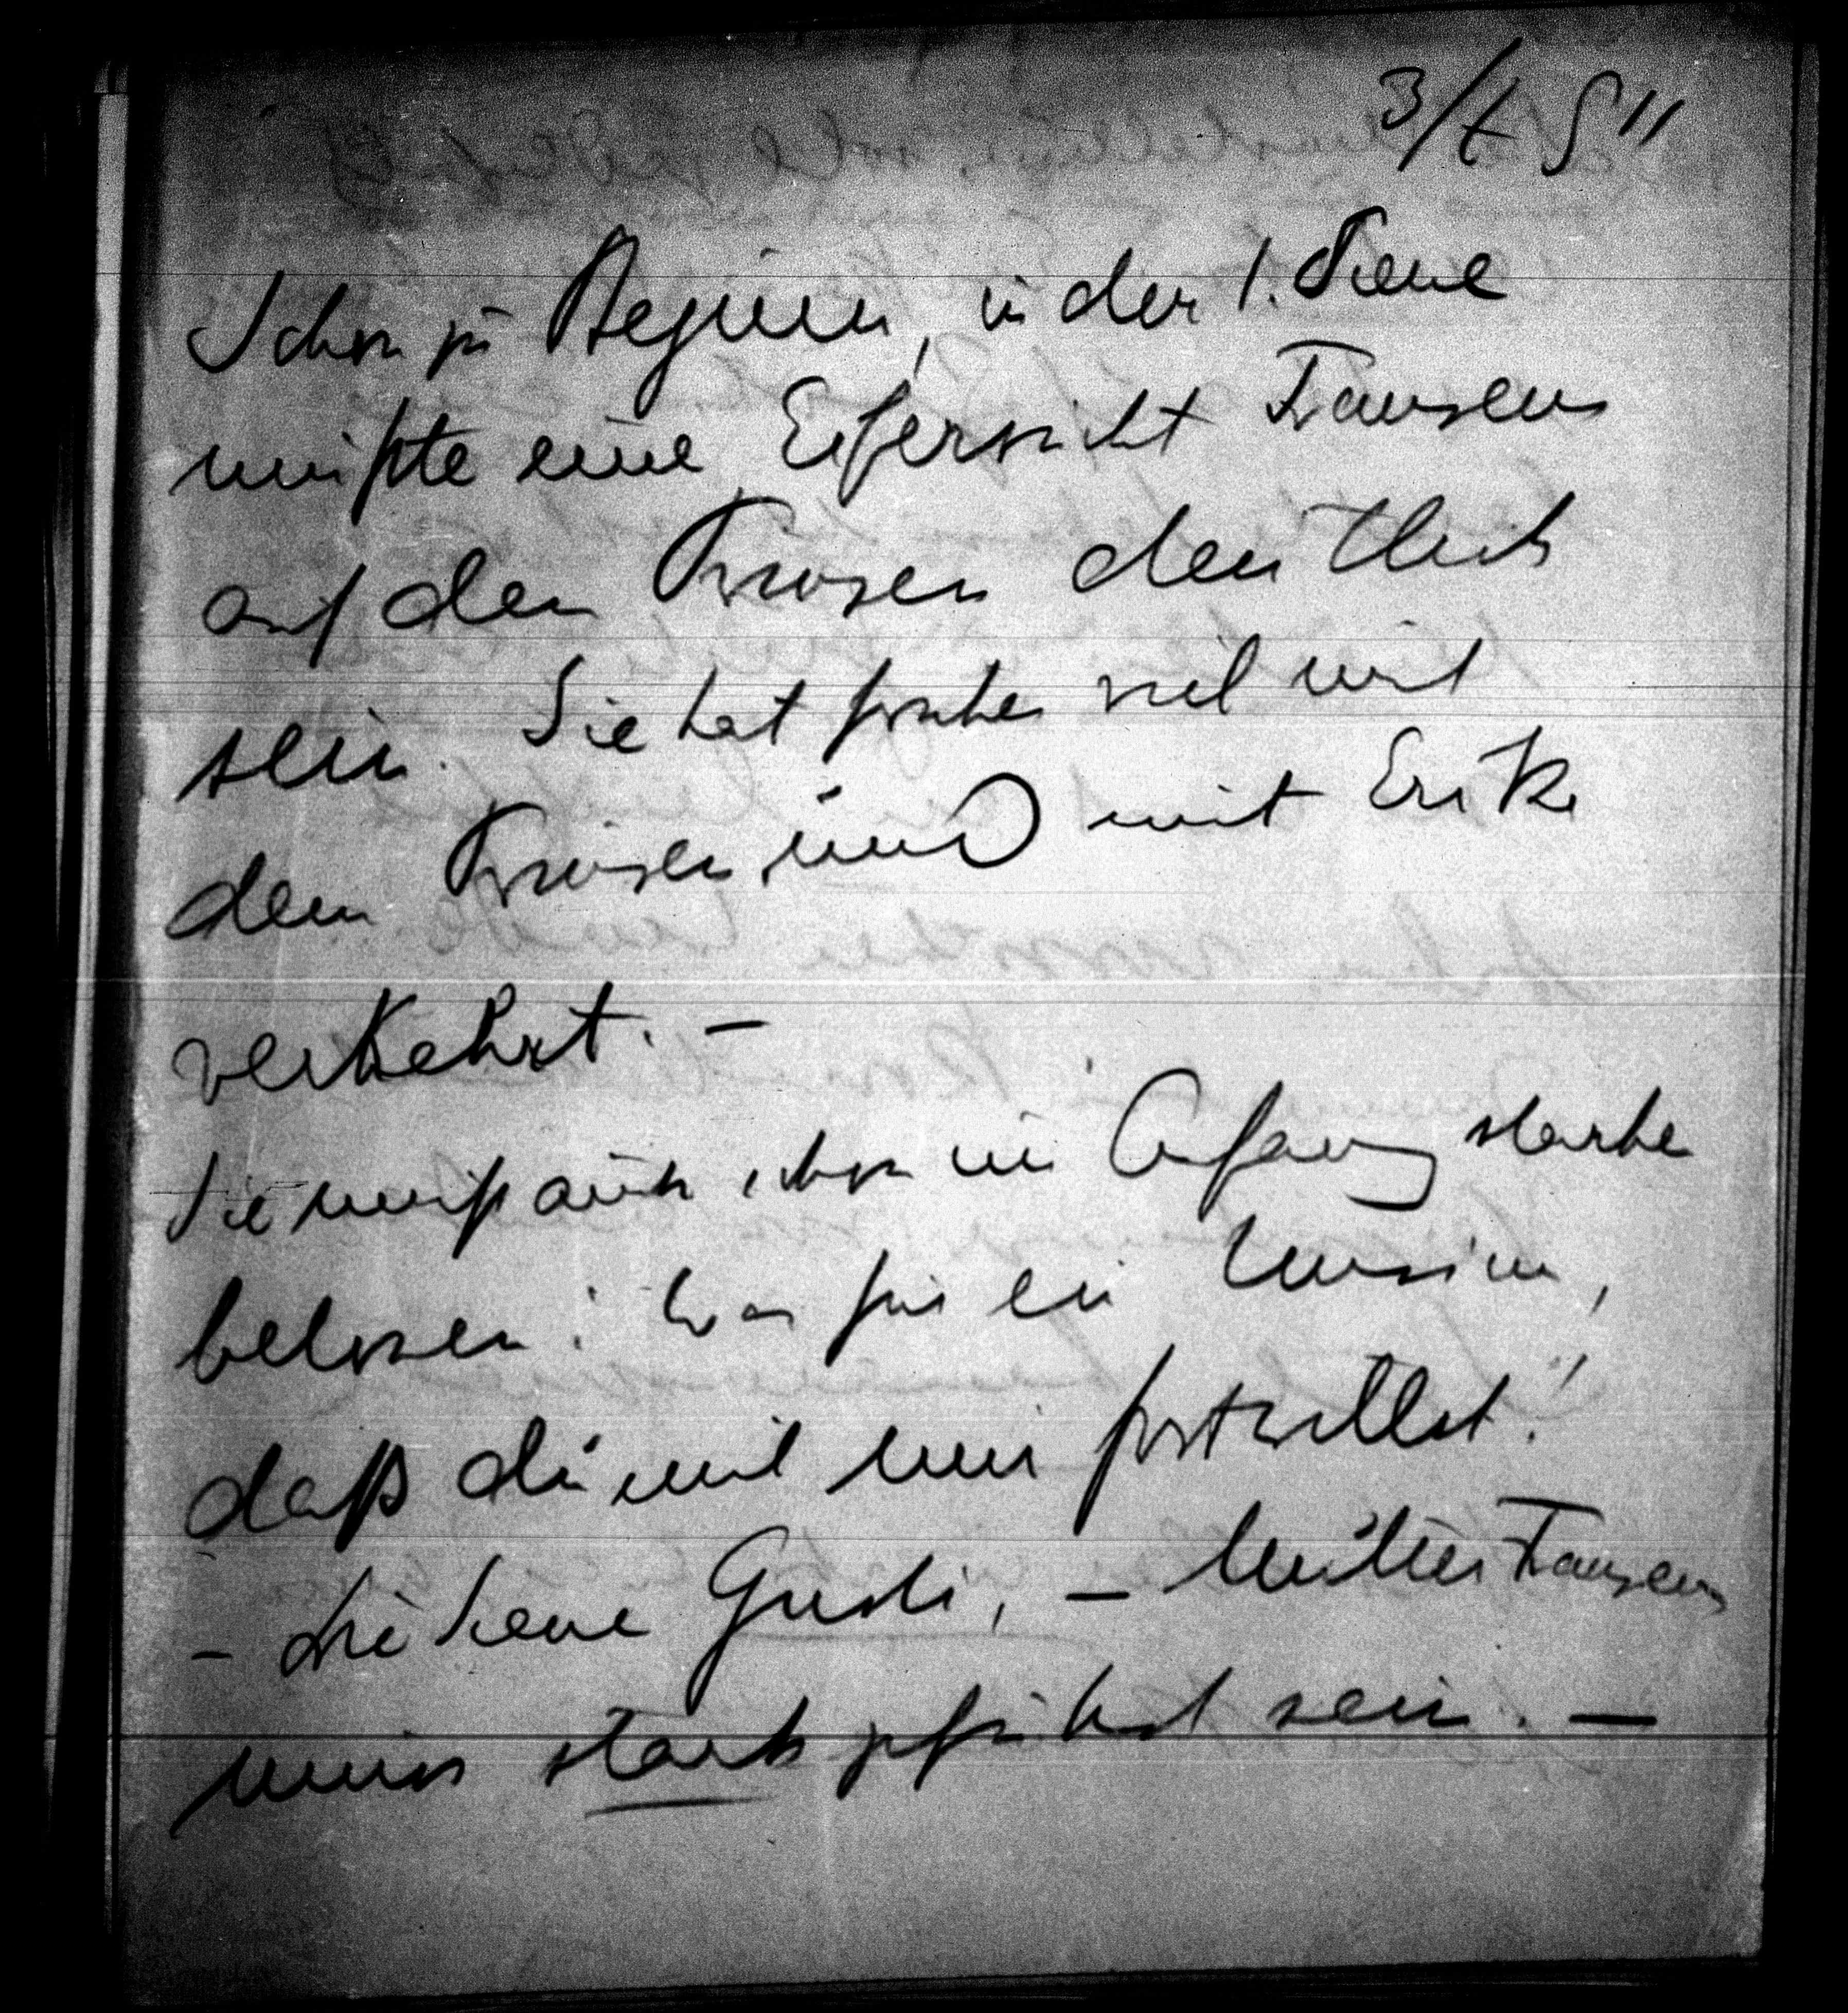 Schon zu Beginn, in der 1. Scene
müßte eine Eifersucht Fransens
auf den deutlich
sein. Sie hat früher viel mit
dem und mit Erik
verkehrt. –
Sie muß auch schon im Anfang starke
betonen: Was für ein Unsinn,
daß du mit mir fortwillst!
– Die Scene Gusti, – Mutter Fransens
muss stark gekürzt sein. –